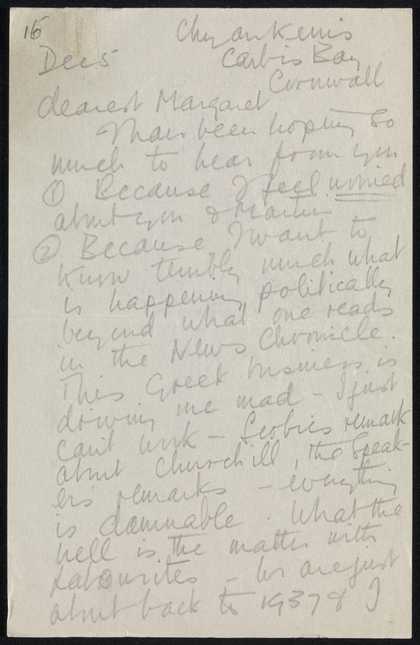 15
Dec 5
Chy an Kerris
Carbis Bay
Cornwall
dearest Margaret
I have been hoping so
much to hear from you
① Because I feel worried
about you & Martin
② Because I want to
know terribly much what
is happening politically
beyond what one reads
in the News Chronicle.
This Greek business is
driving me mad – I just
can't work – Scobie's remark
about Churchill, the Speak-
er's remarks – everything
is damnable. What the
hell is the matter with
Labourites – we are just
about back to 1937 & I